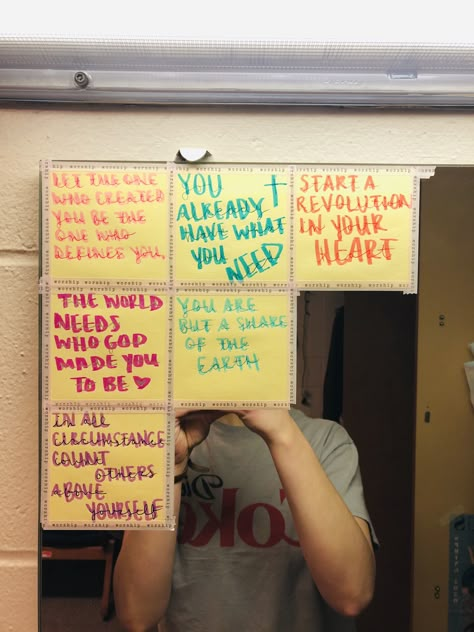 worship worship worship worship
LET THE ONE
WHO CREATED
YOU BE THE
ONE WHO
DEFINES YOU.
YOU
ALREADY
HAVE WHAT
YOU NEED
START A
REVOLUTION
IN YOUR
HEART
THE WORLD
NEEDS
WHO GOD
MADE YOU
TO BE
YOU ARE
BUT A
OF THE
EARTH
IN ALL
CIRCUMSTANCE
COUNT
OTHERS
ABOVE
YOURSELF
Coke